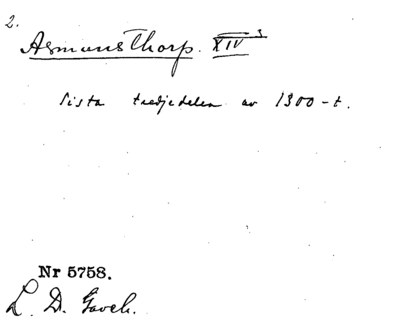 2.
Asmuns Thorp. XIV 3
Sista tredjedelen av 1300-t.
Nr 5758.
L. D. Gavel.